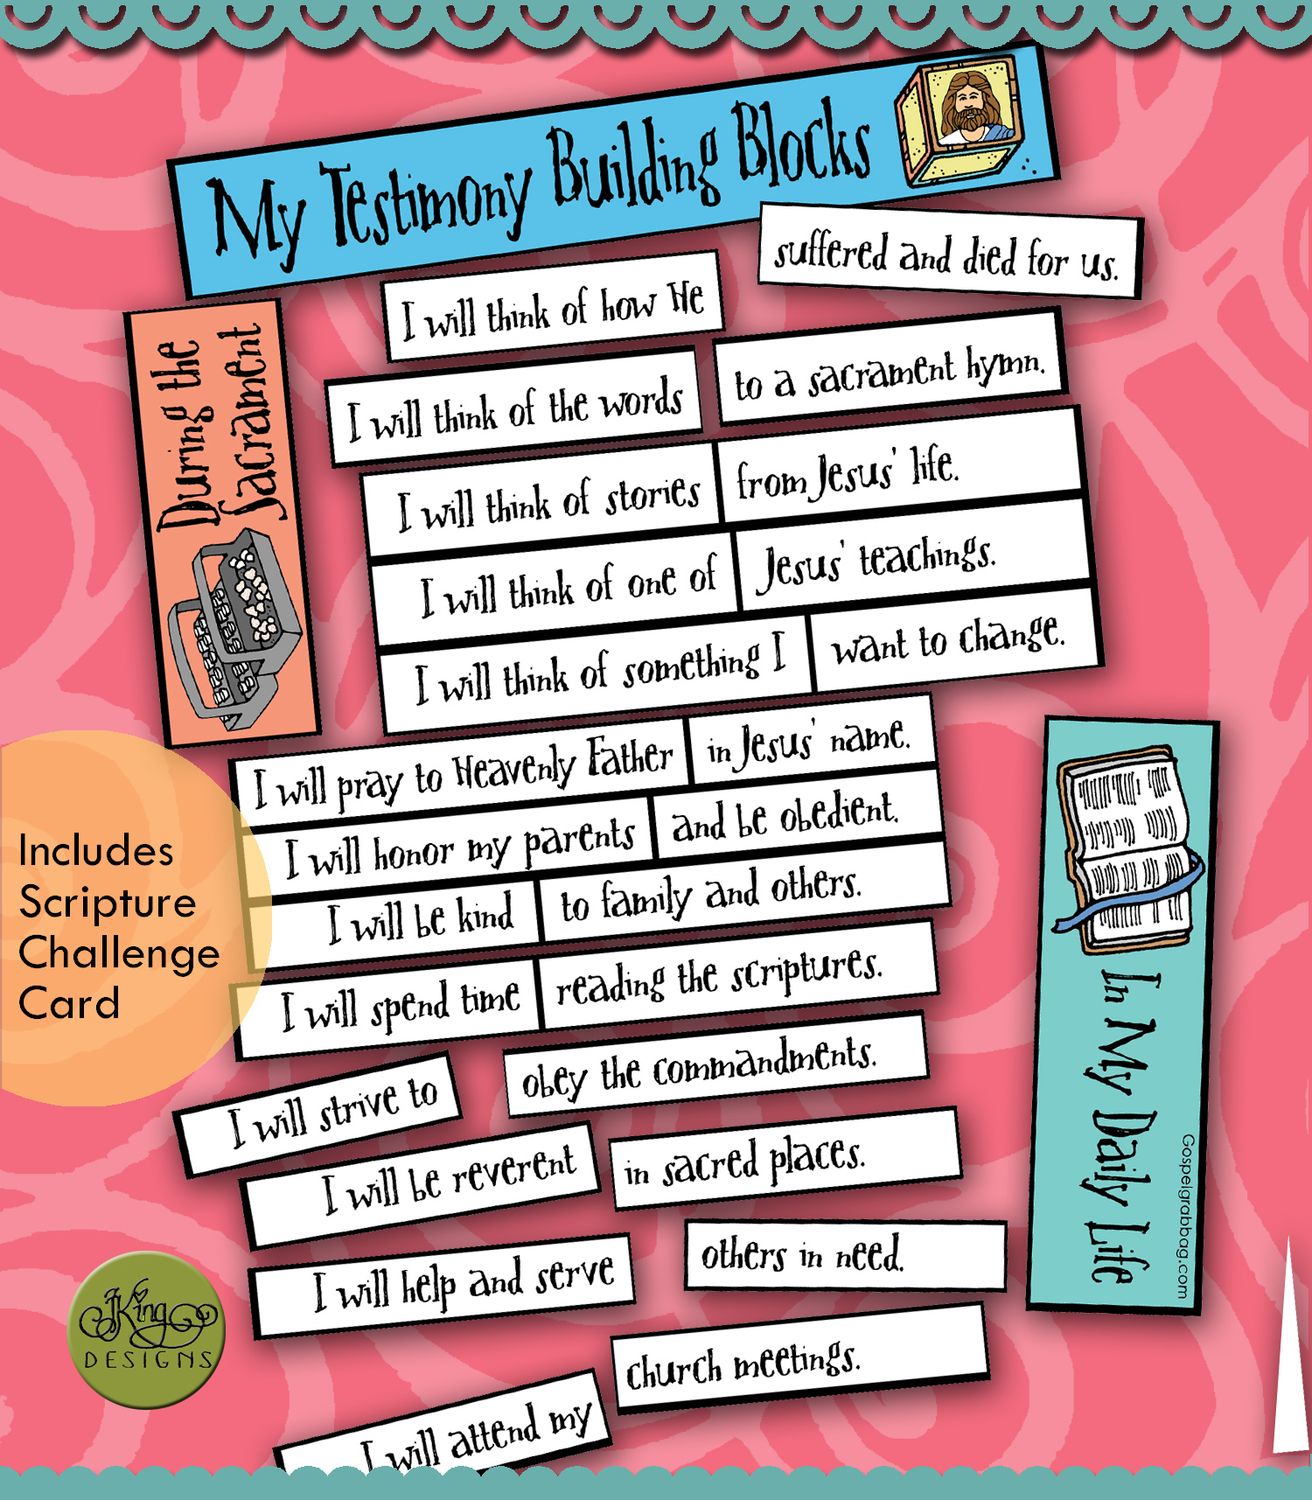 My Testimony Building Blocks
suffered and died for us.
I will think of how He
During the
Sacrament
I will think of the words
to a sacrament hymn.
I will think of stories
from Jesus' life.
I will think of one of
Jesus' teachings.
I will think of something I
want to change.
I will pray to Heavenly Father
in Jesus' name.
I will honor my parents
and be obedient.
I will be kind
to family and others.
I will spend time
reading the scriptures.
I will strive to
obey the commandments.
I will be reverent
in sacred places.
I will help and serve
others in need.
I will attend my
church meetings.
Includes
Scripture
Challenge
Card
In My Daily Life
Gospelgrabbag.com
JKing
DESIGNS